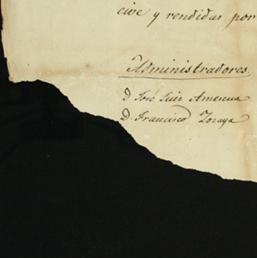 cive y rendidas por
Administradores
D. José Luis Amenua
D. Francisco Zozaya